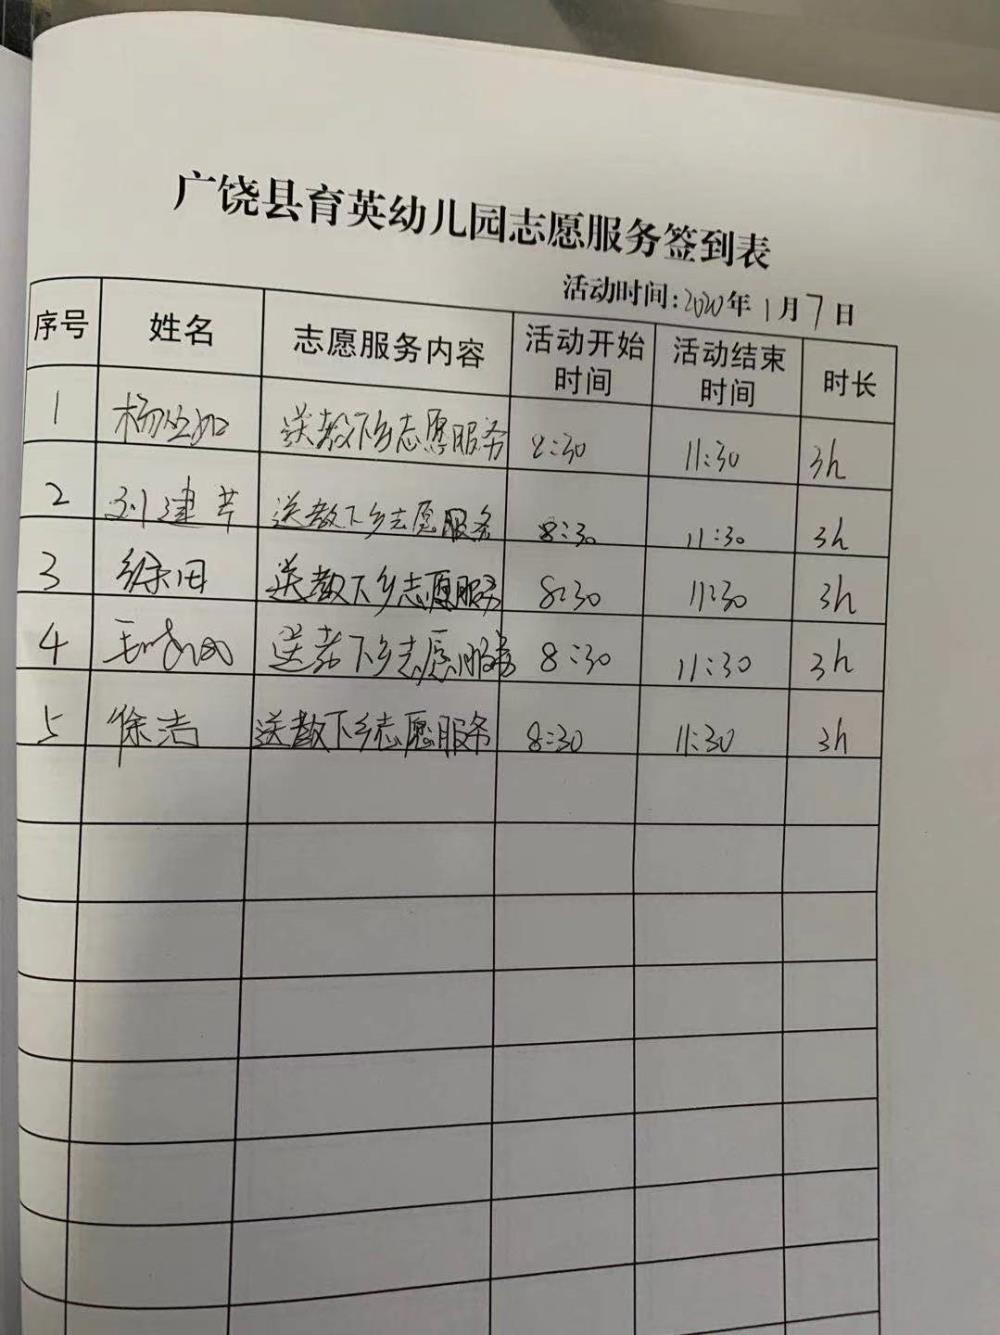 广饶县育英幼儿园志愿服务签到表
活动时间:2020年1月7日
序号 姓名 志愿服务内容 活动开始时间 活动结束时间 时长
1 送教下乡志愿服务 8:30 11:30 3h
2 刘建芹 送教下乡志愿服务 8:30 11:30 3h
3 送教下乡志愿服务 8:30 11:30 3h
4 送教下乡志愿服务 8:30 11:30 3h
5 徐洁 送教下乡志愿服务 8:30 11:30 3h